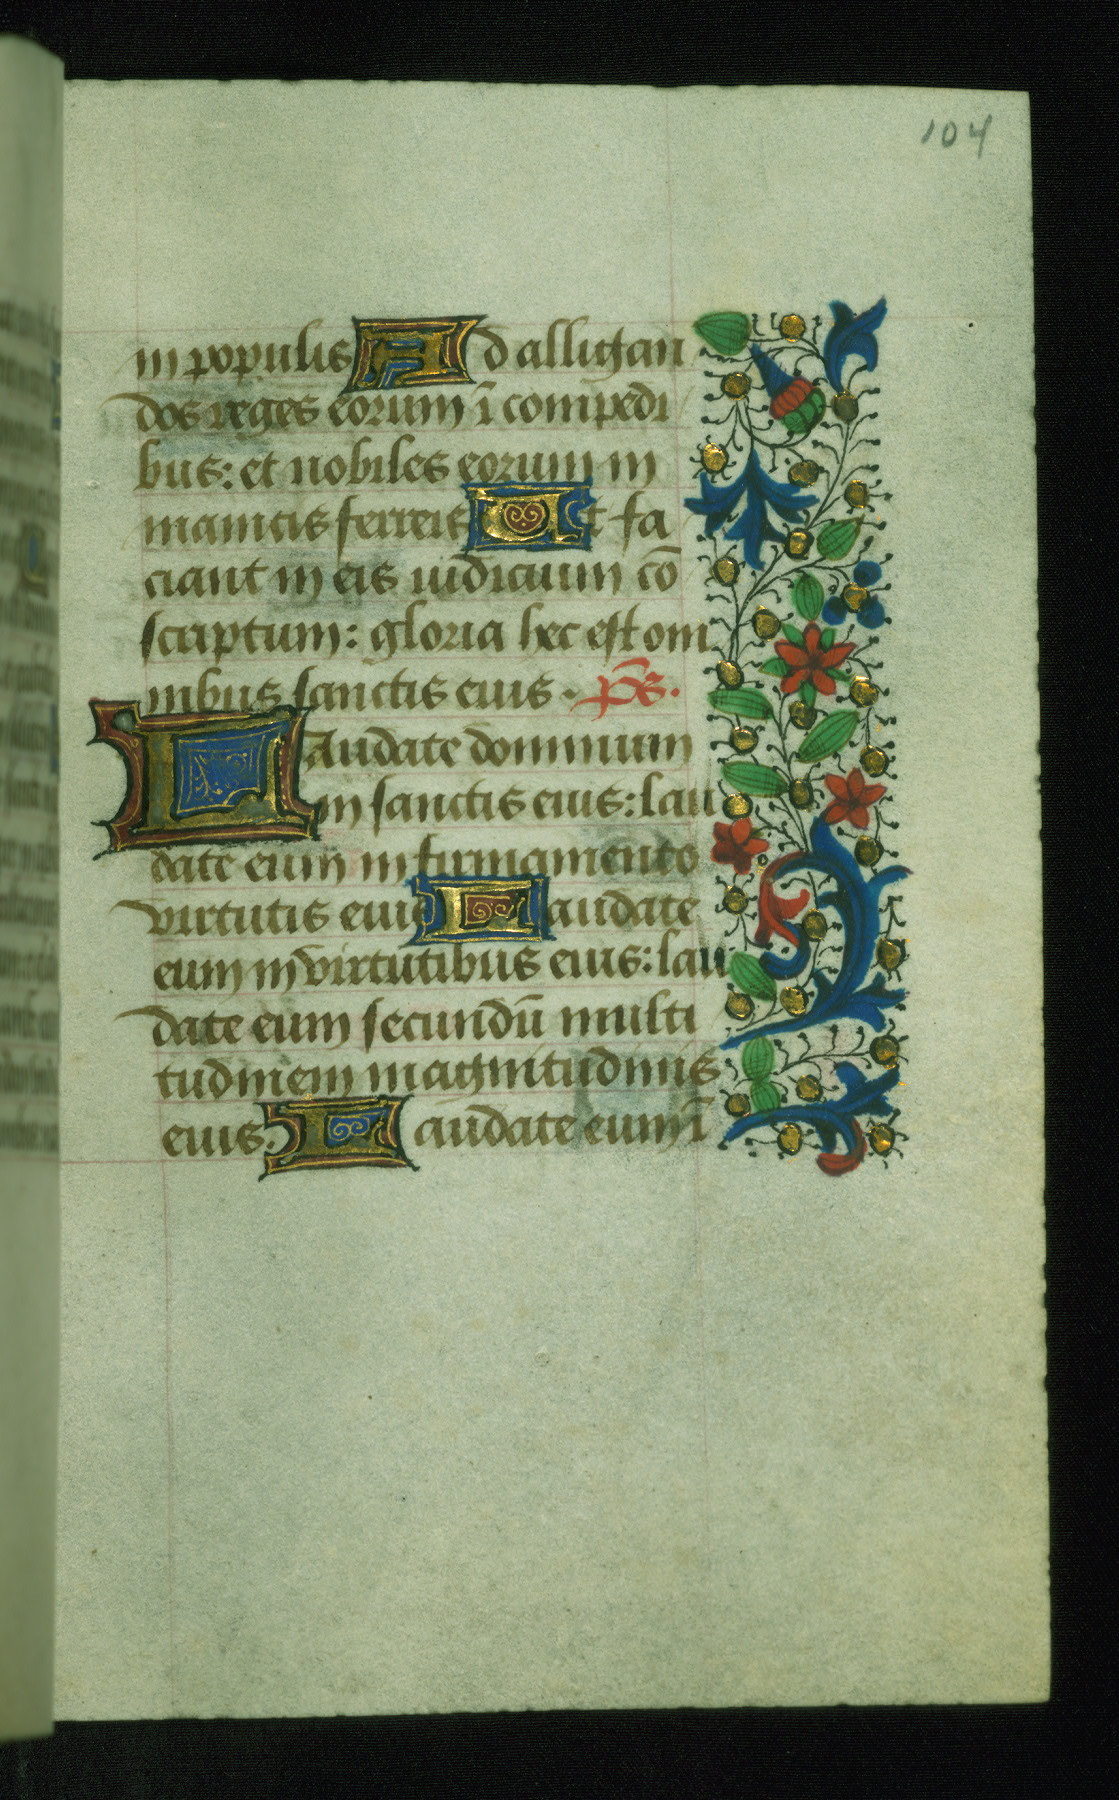 104
in populis Ad alligan
dos reges eorum ī compedi
bus: et nobiles eorum in
manicis ferreis Ut fa
ciant in eis iudicium cō
scriptum: gloria hec est om
nibus sanctis eius. p̄s.
Laudate dominum
in sanctis eius: lau
date eum in firmamento
virtutis eius Laudate
eum in virtutibus eius: lau
date eum secundū multi
tudinem magnitudinis
eius. Laudate eum ī